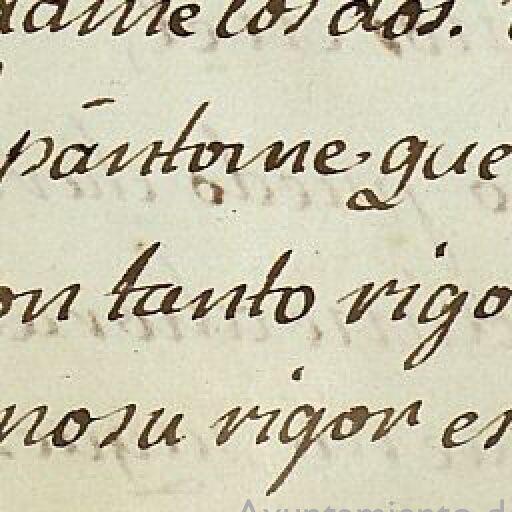 adme los dos.
pántome, que
on tanto rigo
no su rigor es
Ayuntamiento d